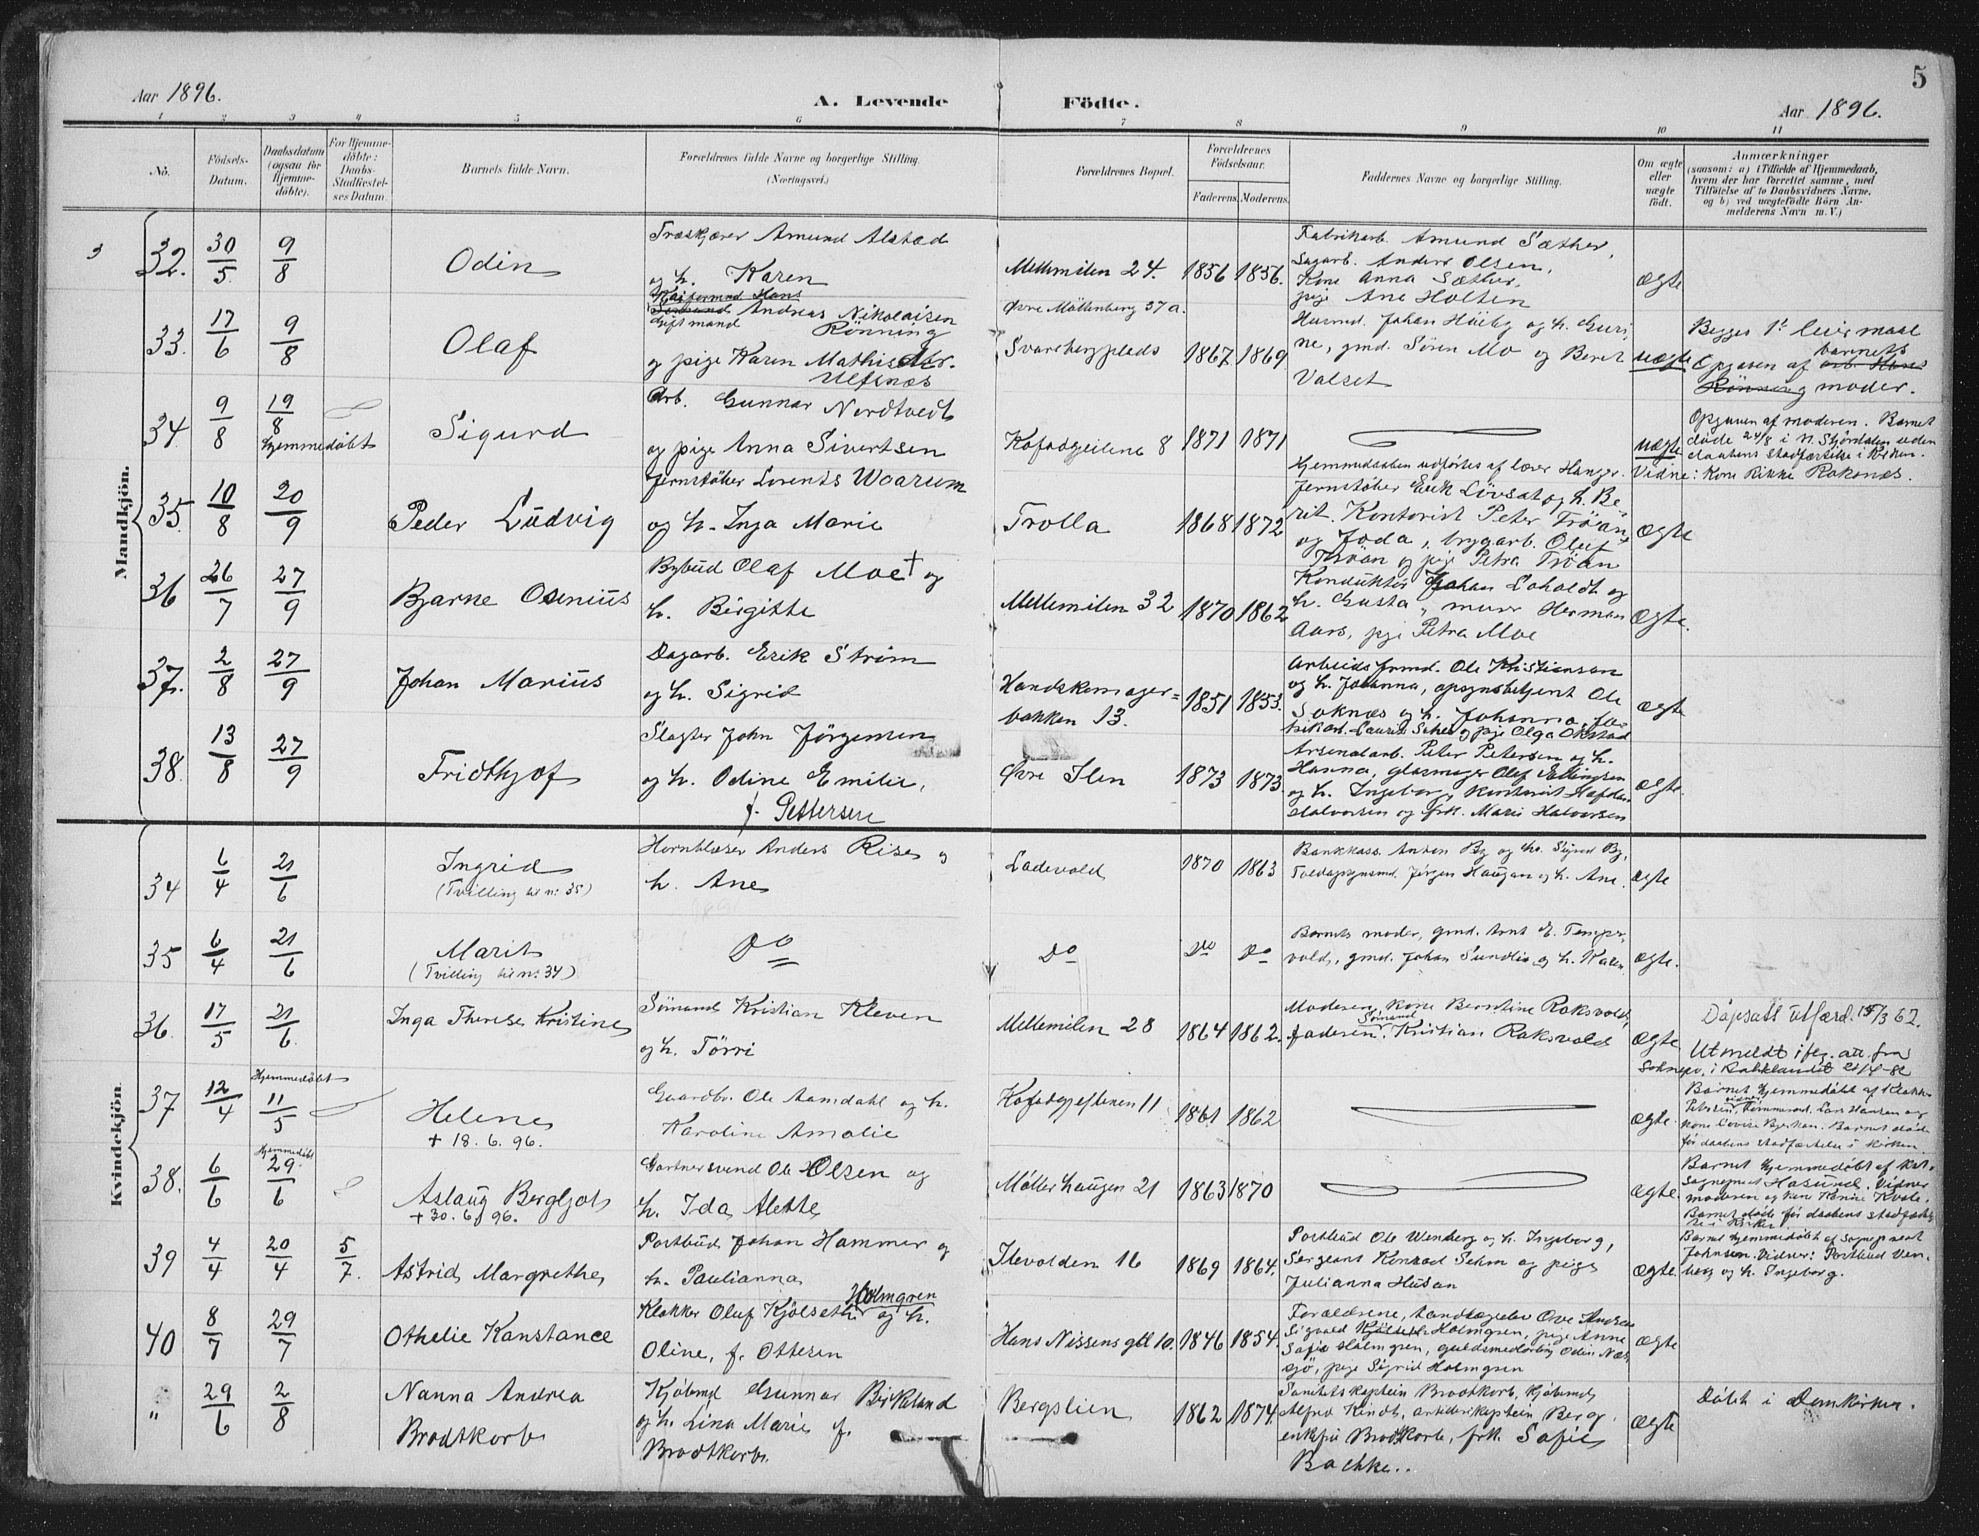 5
Aar 1896.
A. Levende Födte.
Aar 1896.
1 2 3 4 5 6 7 8 9 10 11
No.
Födsels-
Datum.
Daabsdatum
(ogsaa for
Hjemme-
döbte).
For Hjemme-
döbte:
Daabs-
Stadfæstel-
ses Datum.
Barnets fulde Navn.
Forældrenes fulde Navne og borgerlige Stilling.
(Næringsvei.)
Forældrenes Bopæl.
Forældrenes
Födselsaar.
Faderens. Moderens.
Faddernes Navne og borgerlige Stilling.
Om ægte
eller
uægte
födt.
Anmærkninger
(saasom: a) i Tilfælde af Hjemmedaab,
hvem der har forrettet samme, med
Tilföielse af to Daabsvidners Navne,
og b) ved uægtefödte Börn An-
melderens Navn m. V.)
Mandkjön.
3
32. 30/5 9/8
Odin
Amund Alstad
og h. Karen
Mellemilen 24. 1856 1856.
Fabrikarb. Amund Sæther,
Sagarb. Anders Olsen,
Kone Anna Sæther,
pige Ane Holten
ægte
33. 17/6 9/8
Olaf
Andreas Nikolaisen
Giftmand Rönning
og pige Karen Mathisdtr.
Ulfsnæs
Øvre Möllenberg 37 a.
Svarebergplads 1867. 1869
Husmd. Johan Höiby og h. Guri-
ne, gmd. Sören Mo og Beret
Valset
uægte
Begges 1ste leiermaal
Opgaven af barnets
moder.
34. 9/8 19/8
Hjemmedöbt
Sigurd
Arb. Gunnar Nordtvedt
og pige Anna Sivertsen
Kofodgeilene 8 1871 1871
uægte
Opgaven af moderen. Barnet
döde 24/8 i N. Stjördalen uden
daabens stadfæstelse i kirken.
Hjemmedaaben udförtes af lærer Hanger.
Vidne: Kone Rikke Rokenæs.
35. 10/8 20/9
Peder Ludvig
Jernstöber Lorents Waarum
og h. Inga Marie
Trolla 1868 1872
Jernstöber Erik Lövset og h. Be-
rit. Kontorist Peter Tröan
og Joda, brygarb. Oluf
Tröan og pige Petra Tröan
ægte
36 26/7 27/9
Bjarne Osenius
Bybud Olaf Moe † og
h. Birgitte
Mellemilen 32 1870 1862
Konduktör Johan Loholdt og
h. Gusta, murer Herman
Aars, pige Petra Moe
ægte.
37. 2/8 27/9
Johan Marius
Dagarb. Erik Ström
og h. Sigrid
Handskemager=
bakken 13. 1851 1853.
Arbeidsformd. Ole Kristiansen
og h. Johanna, opsynsbetjent Ole
Soknæs og h. Johanna, fa-
brikarb. og pige Olga Okstad
ægte
38. 13/8 27/9
Fridthjof
Slagter John Jörgensen
og h. Odine Emilie,
f. Pettersen
Øvre Ilen 1873 1873
Arsenalarb. Peter Petersen og h.
Hanna, glasmager Olaf Ellingsen
og h. Ingeborg, Kontorist Hafdan
Halvorsen og frk. Marie Halvorsen
ægte.
Kvindekjön.
34 6/4 21/6
Ingrid
(Tvilling til n: 35)
Hornblæser Anders Rise og
h. Ane
Ladevold 1870 1863
Bankkass. Anton By og h. Sigrid By,
Toldopsynsmd. Jörgen Haugan og h. Ane.
ægte
35 6/4 21/6
Marit
(Tvilling til n: 34)
Do
Do Do Do
Barnets moder, gmd. Arnt E. Temper-
vold, gmd. Johan Sundlie og h. Karen
ægte.
36. 17/5 21/6
Inga Therese Kristine
Sömand Kristian Kleven
og h. Törri
Mellemilen 28 1864 1862.
Moderen, kone Berntine Raksvold,
Faderen, Sömand Kristian Raksvold
ægte
Dåpsatt utferd. 15/3 62.
Utmeldt ifлg. att. fra
Soknepr. i Bakklandet 21/4-82
37 12/4 Hjemmedöbt 11/5
Helene
+ 18. 6. 96.
Gaardbr. Ole Aamdahl og h.
Karoline Amalie
Kofodgjeilenen 11 1861 1862
ægte.
Barnet hjemmedöbt af Klokker
Petersen, vidner Tömmermd. Lars Hansen og
kone Lovise Bjerken. Barnet döde
för daabens stadfæstelse i kirken
38. 6/6 Hjemmedöbt 29/6
Aslaug Bergljot
+ 30. 6. 96.
Gartnersvend Ole Olsen og
h. Ida Alette
Möllerhaugen 21 1863 1870
ægte
Barnet hjemmedöbt af Res.
Sogneprest Hasund. Vidner
moderen og kone Karine Kvale.
Barnet döde för daabens stadfæstel-
se i kirken
39 4/4 20/4 5/7.
Astrid Margrethe
Postbud Johan Hammer og
h. Paulianna
Ilevolden 16 1869 1864.
Postbud Ole Wenberg og h. Ingeborg,
Sergeant Konrad Sehm og pige
Julianna Husan
ægte.
Barnet hjemmedöbt af Sogneprest
Johnsen. Vidner: Postbud Wen-
berg og h. Ingeborg.
40 8/7 29/7
Othelie Konstance
Klokker Oluf Kjölseth Holmgren og h.
Oline, f. Ottesen
Hans Nissens gt 10. 1846 1854.
Forældrene, Tandlæge Ove Andreas
Sigvald Holmgren, pige Anne
Sofie Holmgren, guldsmedarb. Odin Næs-
sjö, pige Sigrid Holmgren
ægte
" 29/6 2/8
Nanna Andrea
Brodtkorb
Kjöbmd. Gunnar Birkeland
og h. Lina Marie f.
Brodtkorb.
Bergslien 1862 1874.
Sanitetskaptein Brodtkorb, Kjöbmd.
Alfred Kindt, artillerikaptein Berg,
enkefru Brodtkorb, frk. Sofie
Bachke..
ægte
Döbt i Domkirken.